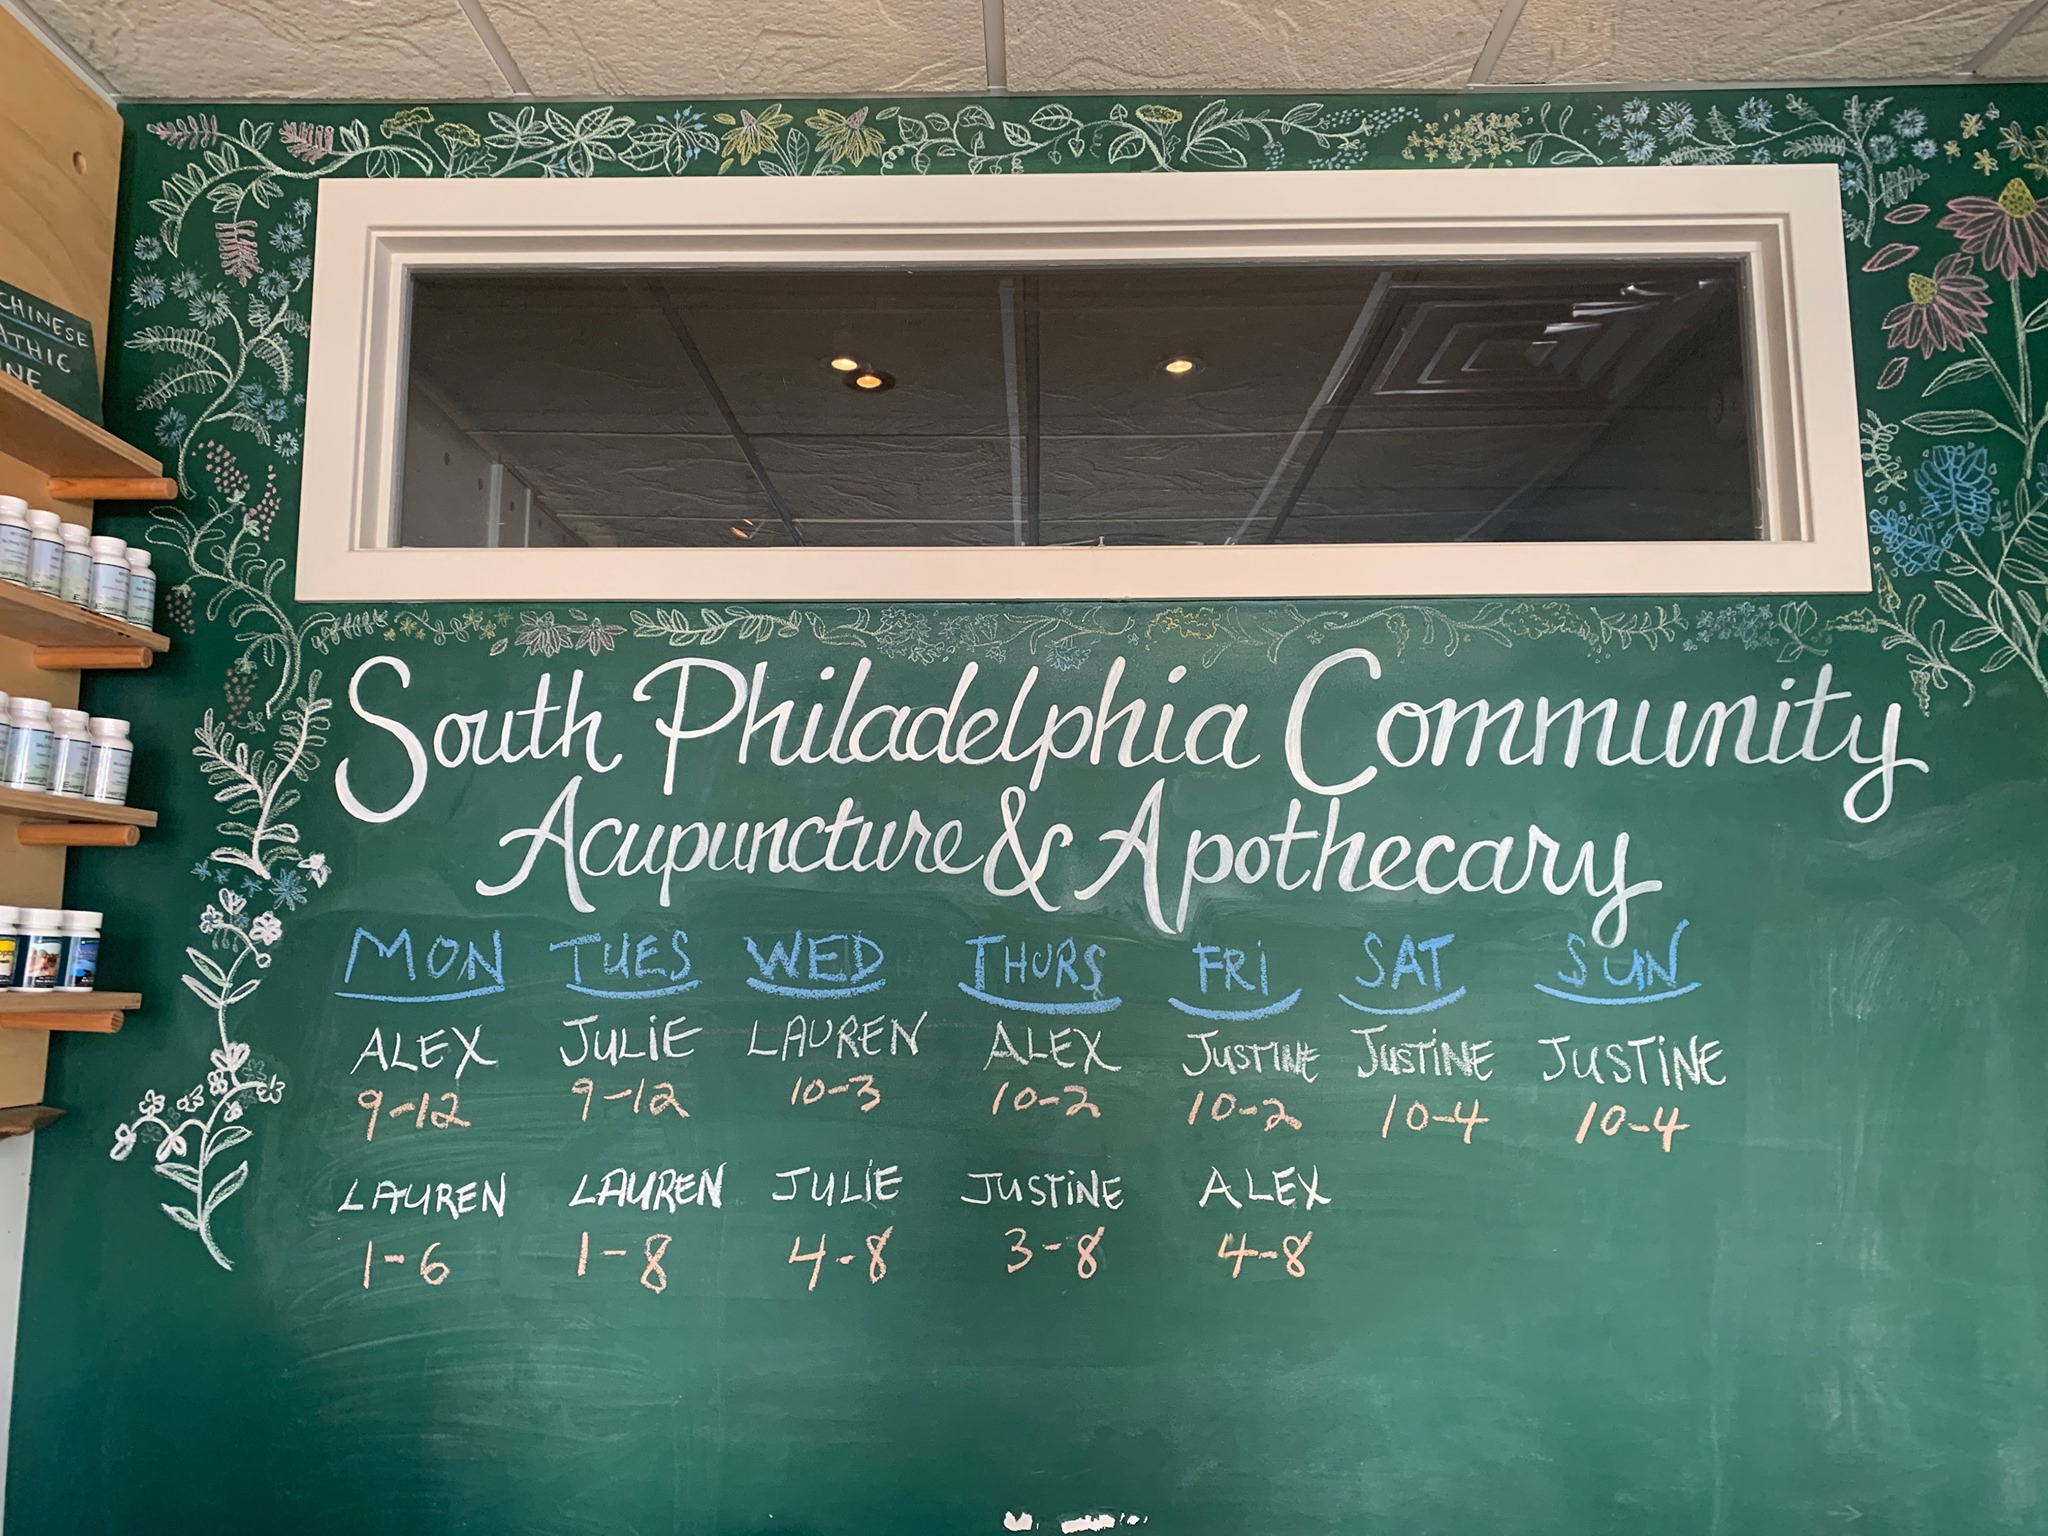 CHINESE
ATHIC
NE
South Philadelphia Community
Acupuncture & Apothecary
MON TUES WED THURS FRI SAT SUN
ALEX JULIE LAUREN ALEX JUSTINE JUSTINE JUSTINE
9-12 9-12 10-3 10-2 10-2 10-4 10-4
LAUREN LAUREN JULIE JUSTINE ALEX
1-6 1-8 4-8 3-8 4-8